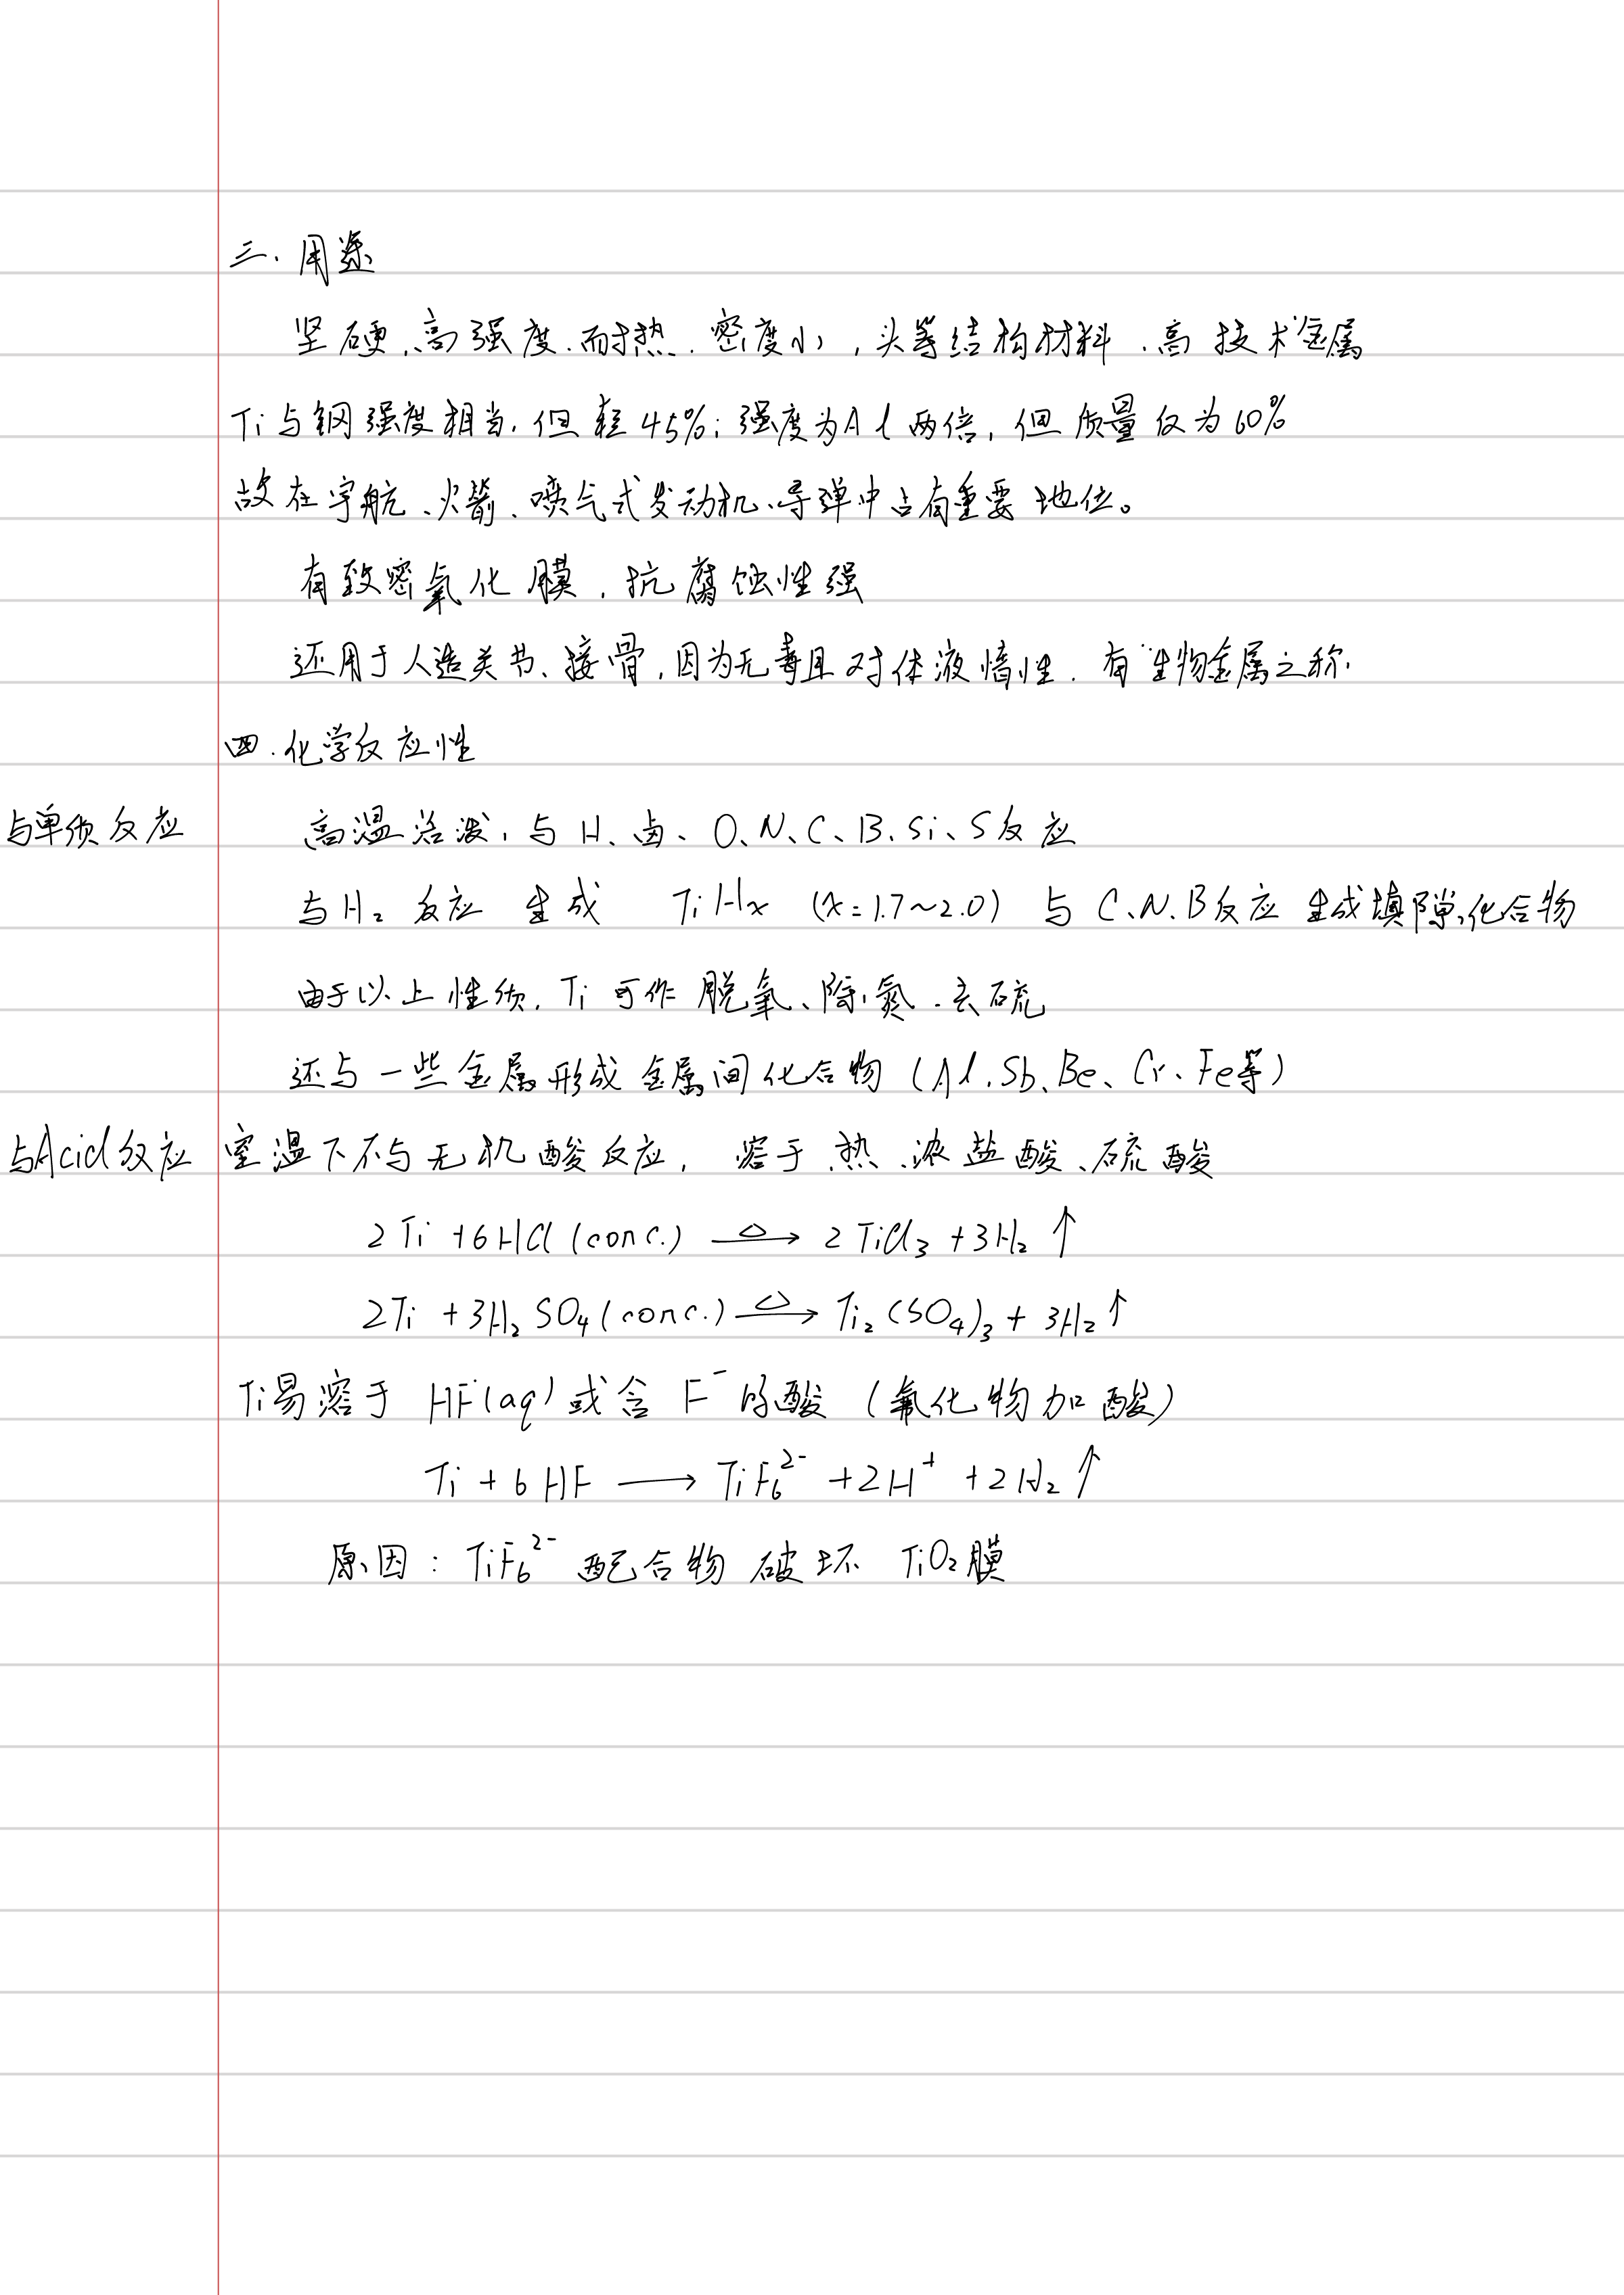 三.用途
坚硬、高强度、耐热、密度小，头等结构材料、高技术金属
Ti与钢强度相当，但轻45%；强度为Al两倍，但质量仅为60%
故在宇航、火箭、喷气式发动机、导弹中占有重要地位。
有致密氧化膜，抗腐蚀性强
还用于人造关节、接骨，因为无毒且对体液惰性．有"生物金属之称．
四.化学反应性
与单质反应 高温活泼，与H、卤、O、N、C、B、Si、S反应
与H₂反应 生成 TiHx (x=1.7~2.0) 与C、N、B反应 生成填隙化合物
由于以上性质，Ti可作脱氧、除氮、去硫
还与一些金属形成金属间化合物（Al、Sb、Be、Cr、Fe等）
与Acid反应 室温下不与无机酸反应， 溶于热、浓盐酸、硫酸
2Ti + 6HCl (conc.) —△→ 2TiCl₃ + 3H₂↑
2Ti + 3H₂SO₄ (conc.) —△→ Ti₂(SO₄)₃ + 3H₂↑
Ti易溶于 HF(aq) 或含 F⁻的酸（氟化物加酸）
Ti + 6HF ⟶ TiF₆²⁻ + 2H⁺ + 2H₂↑
原因：TiF₆²⁻ 配合物破坏 TiO₂膜